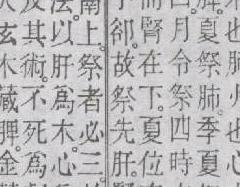 也
夏祭肺季夏心
月令祭四時
腎在下夏位
卻。故祭先肝。
南上。祭者必三
法。以肝爲木心
其術。不死爲
玄木藏胛金